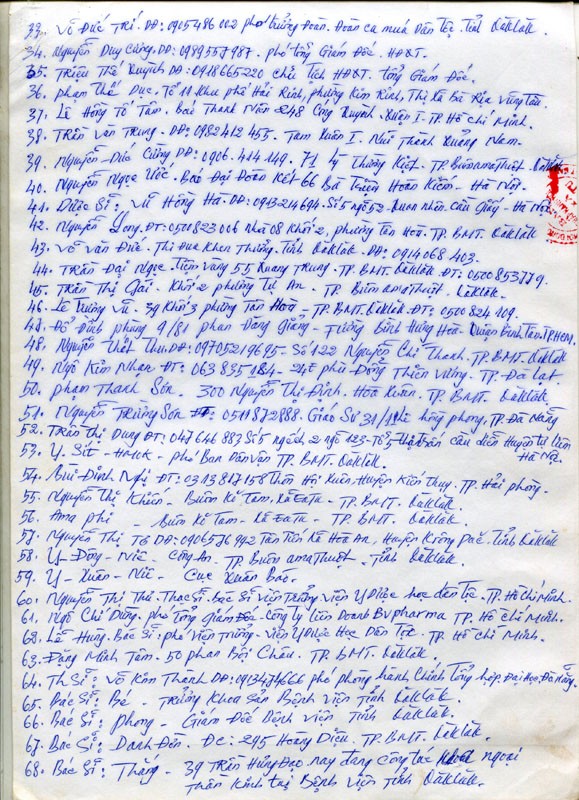 33. Võ Đức Trí. DĐ: 0905486002 phó trưởng đoàn. Đoàn ca múa Dân tộc. Tỉnh Đăklăk.
34. Nguyễn Duy Cường. DĐ: 0989557987. phó tổng Giám Đốc. HĐXT.
35. Triệu Thế Huỳnh DĐ: 0918665220 chủ tịch HĐXT. Tổng Giám Đốc.
36. phạm Thế Dục. Tổ 11 khu phố Hải Rinh, phường Kim Rinh, Thị xã Bà Rịa Vũng tàu.
37. Lê Hồng Tố Tâm. báo Thanh Niên 248 Cống Quỳnh. Quận I. TP. Hồ Chí Minh.
38. Trần Văn Trung. DĐ: 0982412453. Tam Xuân I. Núi Thành Quảng Nam.
39. Nguyễn Đức Cường DĐ: 0906. 414 149. 71 Lý Thường Kiệt. TP. Buônamathuột. Đăklăk
40. Nguyễn Ngọc Việt. Báo Đại Đoàn Kết 66 Bà Triệu Hoàn Kiếm - Hà Nội.
41. Dược Sĩ: Vũ Hồng Hà. DĐ: 0913214694. Số 5 ngõ 52. Quan nhân. Cầu Giấy - Hà Nội
42. Nguyễn Long. ĐT: 0500823006 nhà 08 khối 2, phường Tân Hoà. TP. BMT. Đăklăk
43. Võ Văn Đức. Thi Đua Khen Thưởng. Tỉnh Đăklăk. DĐ: 0914068403.
44. Trần Đại Ngọc Tiệm Vàng 55 Quang Trung. TP. BMT. Đăklăk ĐT: 0500853779.
45. Trần Thị Gái. Khối 2 phường Tự An. TP. Buôn amathuột. Đăklăk.
46. Lê Trường Vũ. 39 Khối 3 phường Tân Hoà - TP. BMT. Đăklăk. ĐT: 0500824109.
47. Đỗ Đình phong 9/81 phan Đăng Giảng - phường Bình Hưng Hoà. Quận Bình Tân. TP. HCM.
48. Nguyễn Thất Thu. DĐ: 09705219695 - Số 122 Nguyễn Chí Thanh. TP. BMT. Đăklăk
49. Ngô Kim Nhạn ĐT: 063 835 184 - 24E phù Đổng Thiên Vương. TP. Đà Lạt.
50. phạm Thanh Sơn. 300 Nguyễn Thị Định. Hoà Xuân. TP. BMT. Đăklăk.
51. Nguyễn Trường Sơn ĐT: 0511872888. Giáo Sư 31/1 Lê hồng phong, TP. Đà Nẵng
52. Trần Thị Dung ĐT: 047646 883 Số 5 ngách 2 ngõ 123 - Tổ, Thị trấn cầu diễn Huyện từ liêm Hà Nội.
53. Y. Sít - HMOK - phó Ban Dân vận TP. BMT. Đăklăk.
54. Bùi Đình Nghị ĐT: 0313817158 Thôn Hội Xuân. Huyện Kiến thụy. TP. Hải phòng.
55. Nguyễn Thị Khiên - Buôn Kô Tam. xã EaTu - TP. BMT. Đăklăk.
56. Ama phi - Buôn Kô Tam - Xã EaTu - TP. BMT. Đăklăk.
57. Nguyễn Thị Tơ DĐ: 0905769 42 Tân Tiến xã Hoà An, Huyện Krông păc. Tỉnh Đăklăk
58. Y - Đông - Niê - Công An. TP. Buôn amathuột. Tỉnh Đăklăk.
59. Y - Xuân - Niê - Cục Xuân Bắc.
60. Nguyễn Thị Thu. Thạc Sĩ. Bác Sĩ viện trưởng viện Y Dược học dân tộc. TP. Hồ Chí Minh.
61. Ngô Chí Dũng. phó tổng giám Đốc. Công Ty Liên Doanh BVpharma TP. Hồ Chí Minh.
62. Lã Hưng. Bác Sĩ: phó Viện Trưởng. Viện Y Dược Học Dân Tộc. TP. Hồ Chí Minh.
63. Đặng Minh Tâm. 50 phan Bội Châu. TP. BMT. Đăklăk.
64. Th Sĩ: Võ Kim Thanh DĐ: 0913474666 phó phòng hành Chính Tổng hợp. Đại Học. Đà Nẵng.
65. Bác Sĩ: Bé - Trưởng Khoa Sản Bệnh Viện Tỉnh Đăklăk.
66. Bác Sĩ: phong - Giám Đốc Bệnh Viện Tỉnh Đăklăk.
67. Bác Sĩ: Danh Đôn. Đc: 295 Hoàng Diệu. TP. BMT. Đăklăk.
68. Bác Sĩ: Thắng - 39 Trần Hưng Đạo nay đang công tác khoa ngoại
Thần Kinh tại Bệnh Viện Tỉnh Đăklăk.